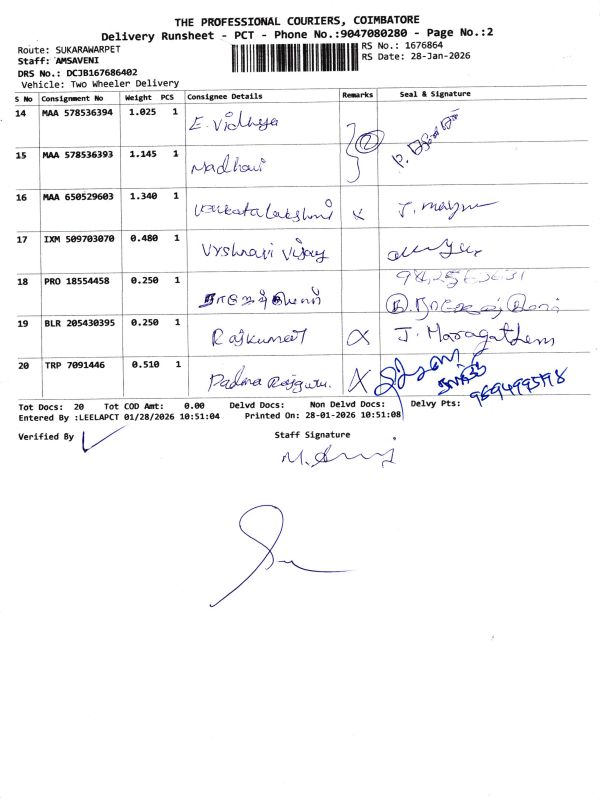 THE PROFESSIONAL COURIERS, COIMBATORE
Delivery Runsheet - PCT - Phone No.:9047080280 - Page No.:2
Route: SUKARAWARPET RS No.: 1676864
Staff: AMSAVENI RS Date: 28-Jan-2026
DRS No.: DCJB167686402
Vehicle: Two Wheeler Delivery
S No Consignment No Weight PCS Consignee Details Remarks Seal & Signature
14 MAA 578536394 1.025 1 E. Vidhya
2
15 MAA 578536393 1.145 1 Madhavi
16 MAA 650529603 1.340 1 Venkatalakshmi
17 IXM 509703070 0.480 1 Vyshnavi Vijay
18 PRO 18554458 0.250 1
19 BLR 205430395 0.250 1 Rajkumar J. Maragatham
20 TRP 7091446 0.510 1 Padma Rajguru
Tot Docs: 20 Tot COD Amt: 0.00 Delvd Docs: Non Delvd Docs: Delvy Pts:
Entered By :LEELAPCT 01/28/2026 10:51:04 Printed On: 28-01-2026 10:51:08
Verified By Staff Signature